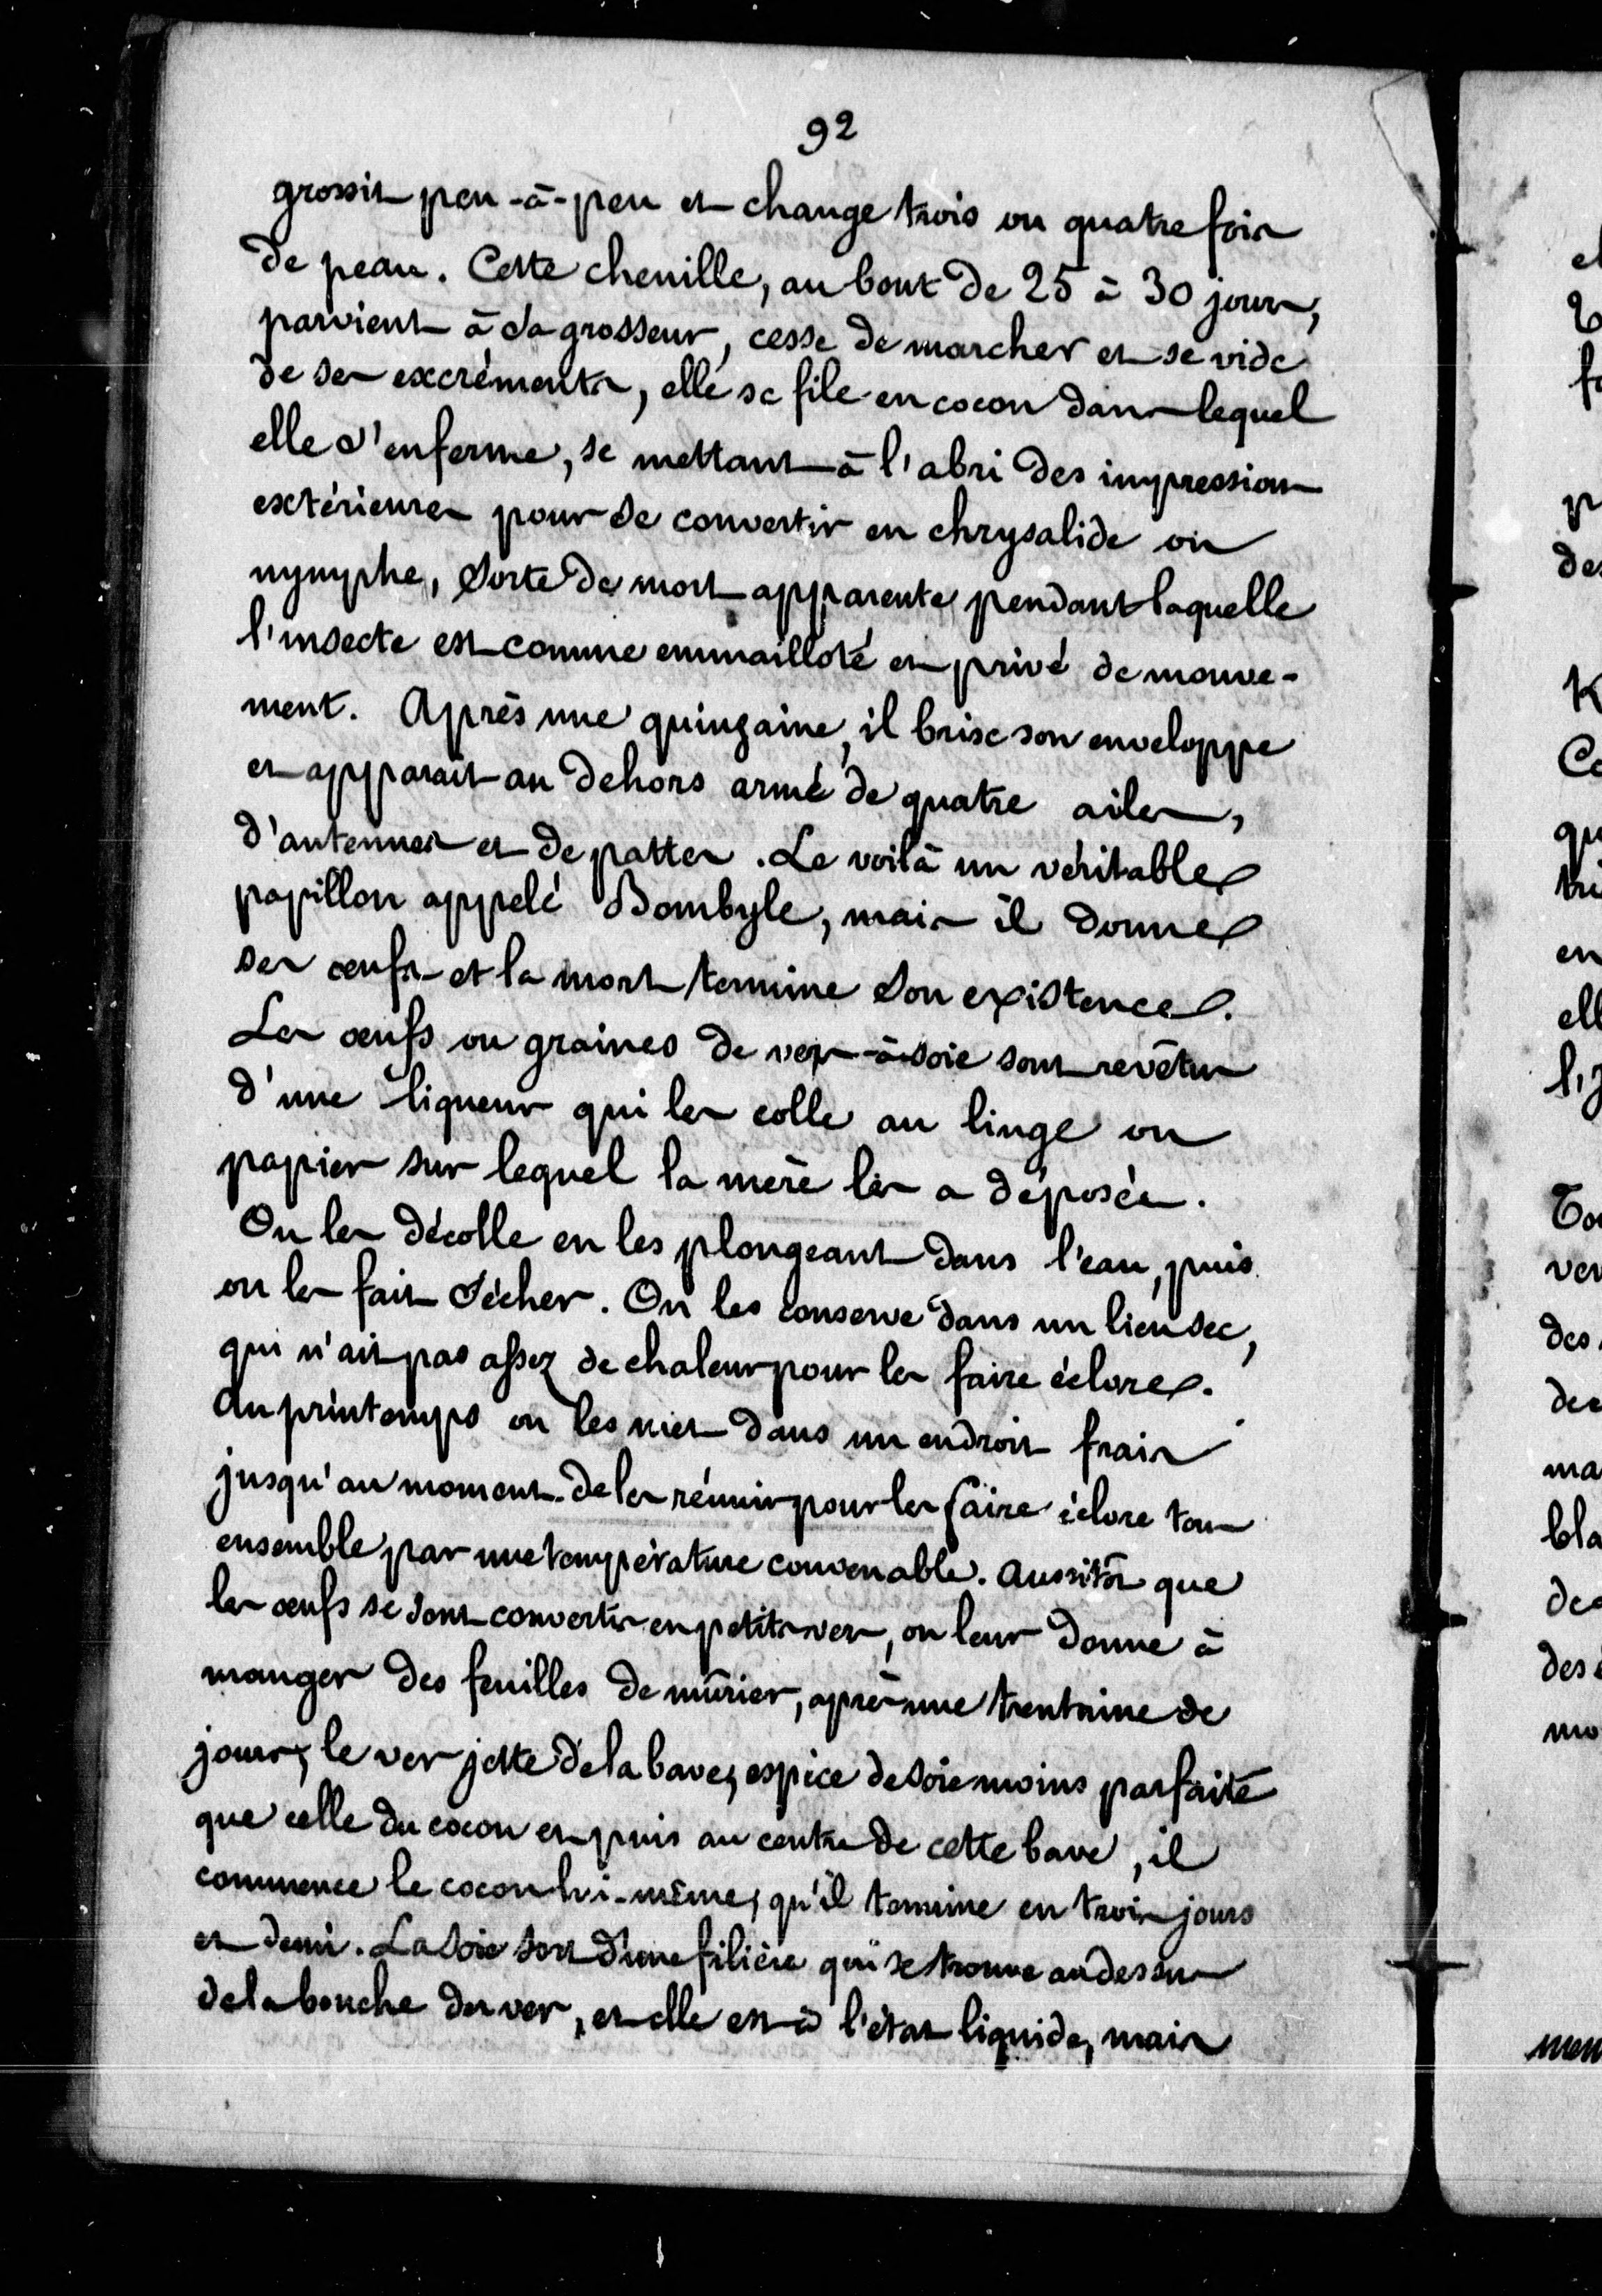 92
grossit peu-à-peu et change trois ou quatre fois
de peau. Cette chenille, au bout de 25 à 30 jours,
parvient à sa grosseur, cesse de marcher et se vide
de ses excréments, elle se file en cocon dans lequel
elle s'enferme, se mettant à l'abri des impressions
extérieures pour se convertir en chrysalide ou
nymphe, sorte de mort apparente pendant laquelle
l'insecte est comme emmailloté et privé de mouve-
ment. Après une quinzaine, il brise son enveloppe
et apparait au dehors armé de quatre ailes,
d'antennes et de pattes. Le voilà un véritable
papillon appelé Bombyle, mais il donne
ses œufs et la mort termine son existence.
Les œufs ou graines de vers-à-soie sont revêtus
d'une liqueur qui les colle au linge ou
papier sur lequel la mère les a déposés.
On les décolle en les plongeant dans l'eau, puis
on les fait sécher. On les conserve dans un lieu sec,
qui n'ait pas assez de chaleur pour les faire éclore.
Au printemps on les met dans un endroit frais
jusqu'au moment de les réunir pour les faire éclore tous
ensemble par une température convenable. Aussitôt que
les œufs se sont convertis en petits vers, on leur donne à
manger des feuilles de mûrier, après une trentaine de
jours, le ver jette de la bave, espèce de soie moins parfaite
que celle du cocon et puis au centre de cette bave, il
commence le cocon lui-même, qu'il termine en trois jours
et demi. La soie sort d'une filière qui se trouve au dessus
de la bouche du ver, et elle est à l'état liquide, mais